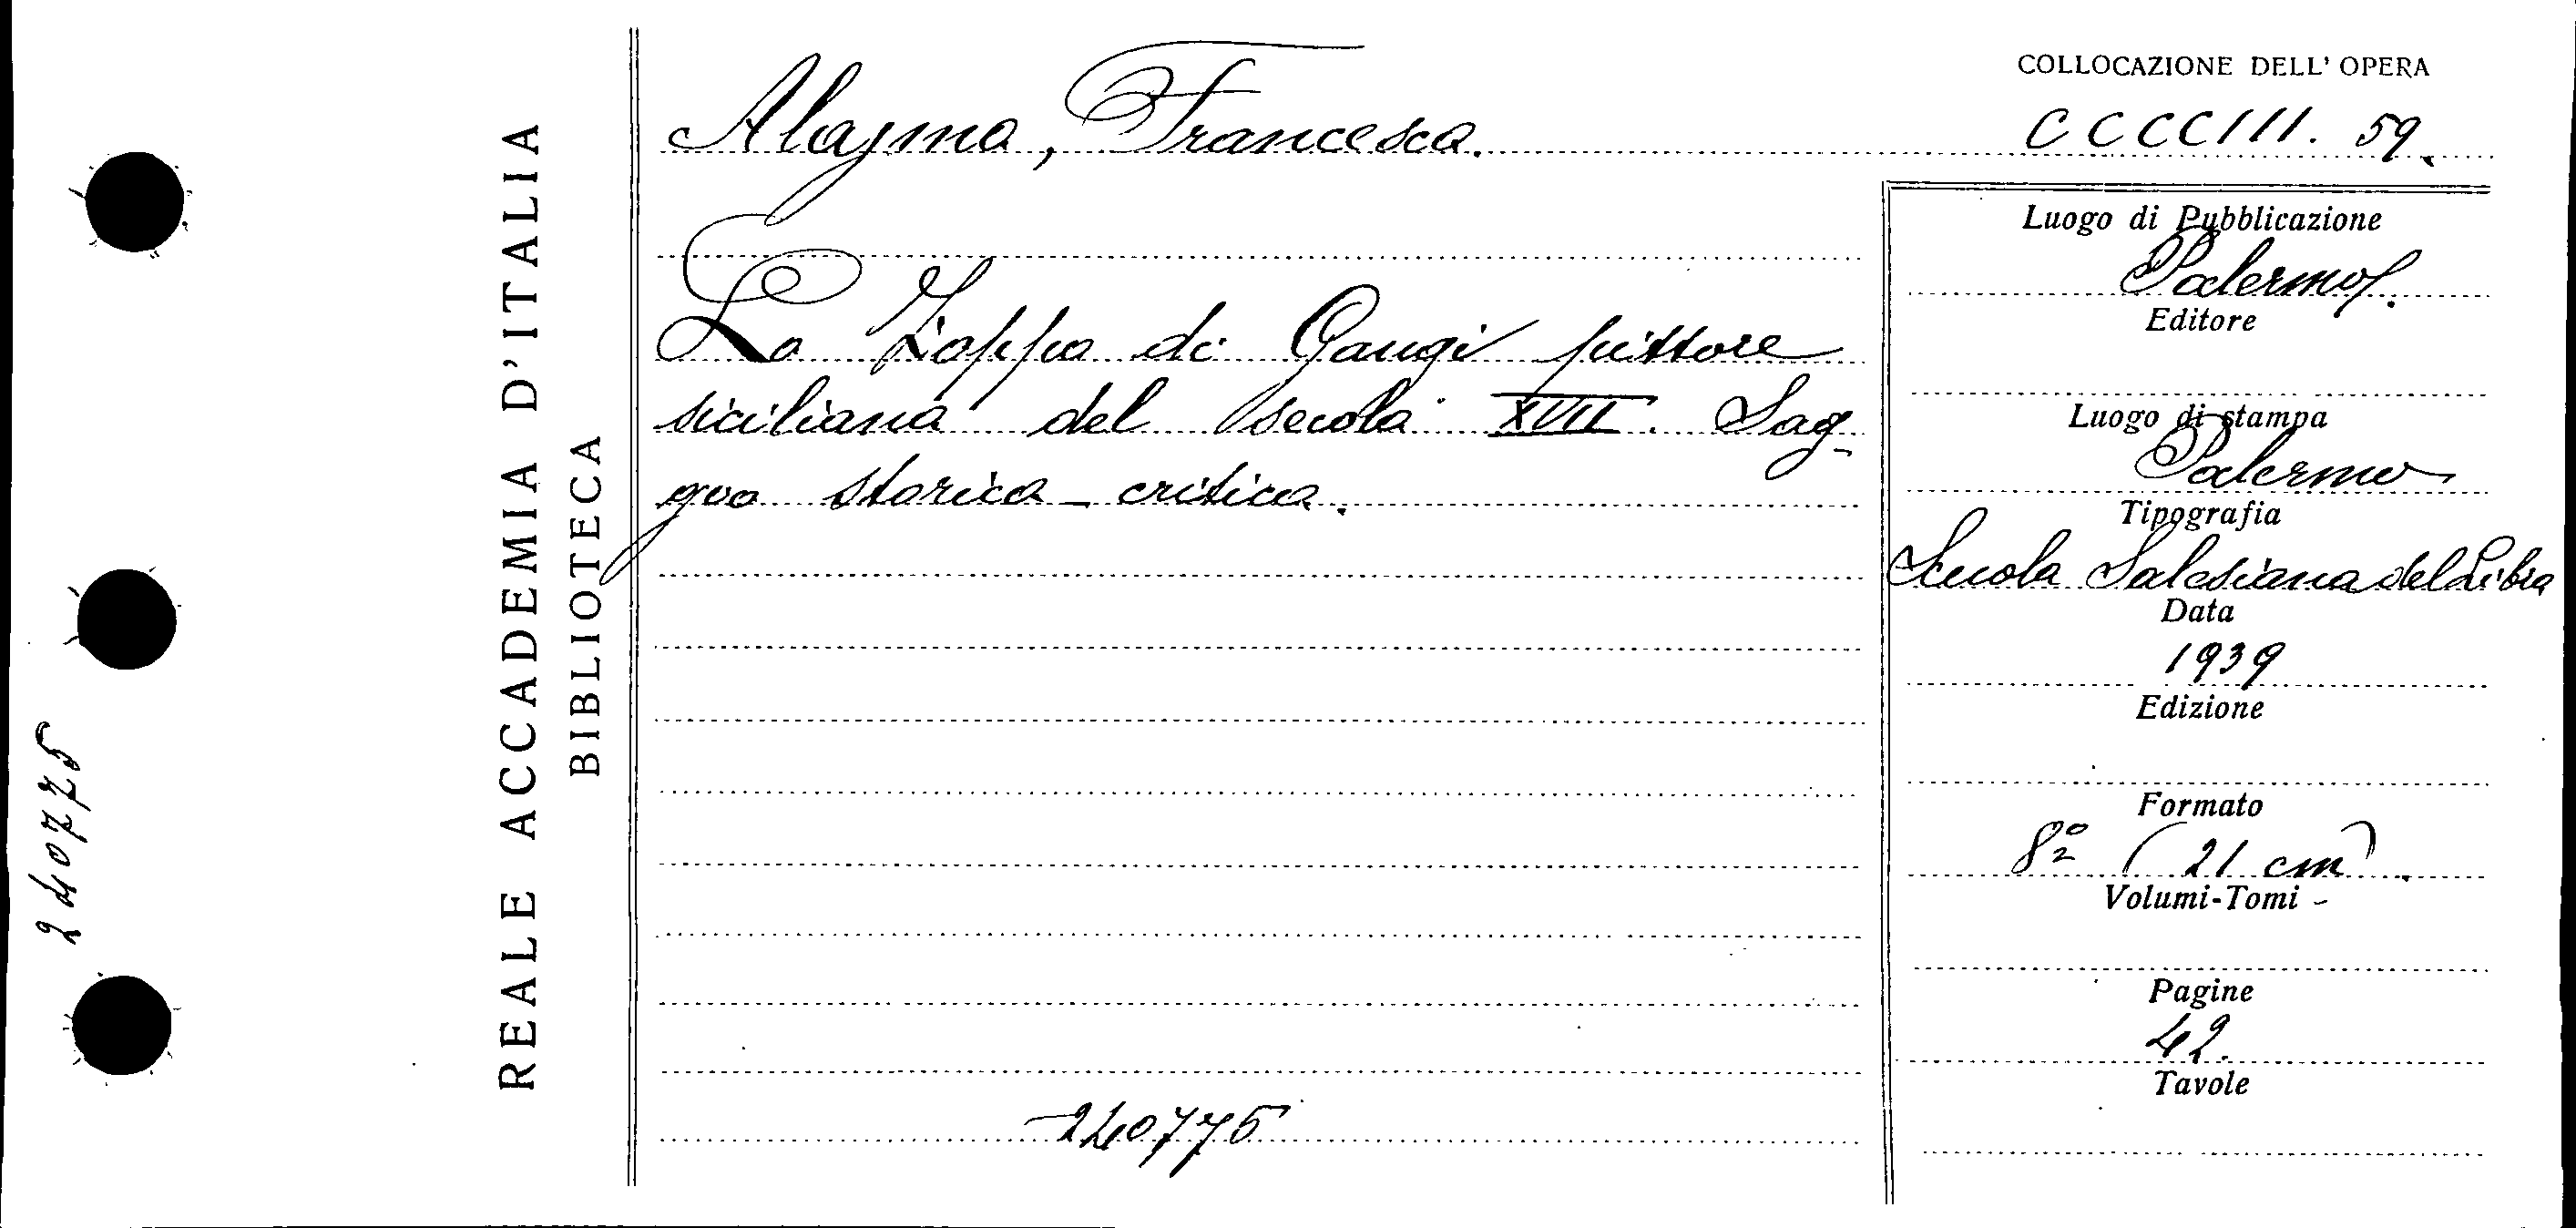 REALE ACCADEMIA D'ITALIA
BIBLIOTECA
240775
Alajmo, Francesco.
Lo Zoppo di Gangi pittore
siciliano del secolo XVII. Sag-
gio storico-critico.
240775
COLLOCAZIONE DELL' OPERA
CCCCIII. 59.
Luogo di Pubblicazione
Palermo.
Editore
Luogo di stampa
Palermo
Tipografia
Scuola Salesiana del Libro
Data
1939
Edizione
Formato
8º (21 cm).
Volumi-Tomi -
Pagine
42.
Tavole